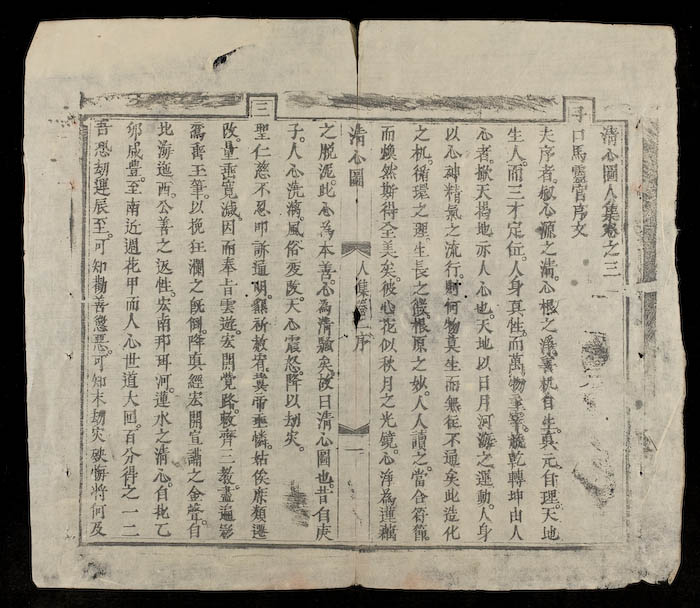 子
清心圖人集卷之三
口馬靈官序文
夫序者椒心源之滿心根之淨裏机自生真元自理天地
生人而三才定位人身真性而萬物主宰旋乾轉坤由人
心者掀天揭地亦人心也天地以日月河海之運動人身
以心神精氣之流行則何物莫生而無征不通矣此造化
之机循環之理生長之後根原之妙人人讀之當合符籙
而煥然斯得全美矣彼心花似秋月之光鏡心淨為蓮藕
清心圖
人集卷三序
一
三
之脫泥此心為本善心為清騷矣故曰清心圖也昔自庚
子人心澆漓風俗变改天心震怒降以劫灾
聖仁慈不忍叩訴通明額祈赦宥蒙帝垂憐姑俟庶類遷
改量垂寬減因而奉旨雲遊宏開覺路敷齊三教盡遍彩
鸞齊玉筆以挽狂瀾之旣倒降真經宏開宣講之金聲自
北海迤西公善之返性宏南那珥河蓮水之清心自北乙
卯咸豐至南近週花甲而人心世道大回百分得之一二
吾恐刼運辰至可知勸善懲惡可知末刼灾殃悔將何及